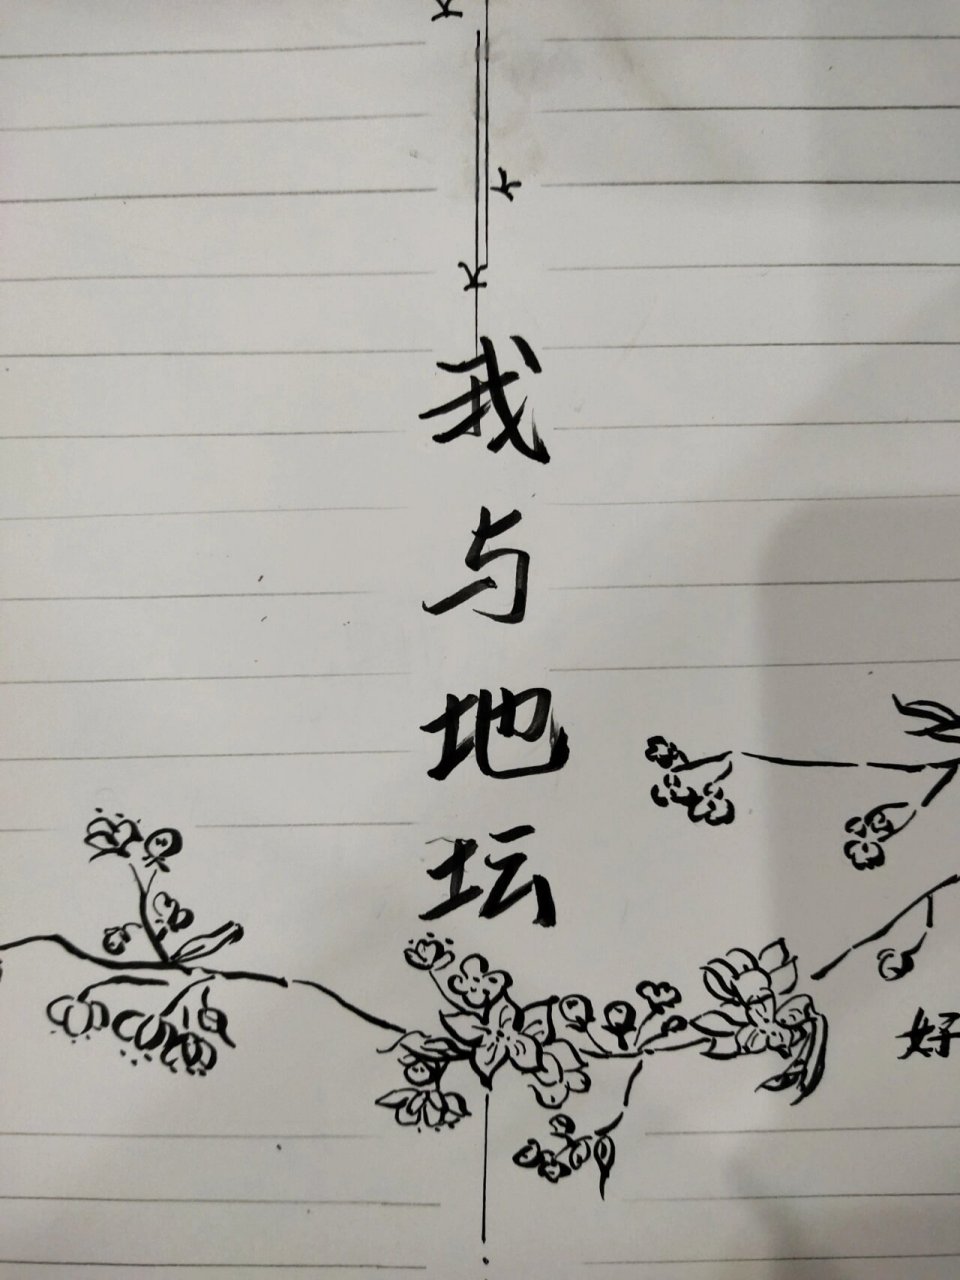 我与地坛
好